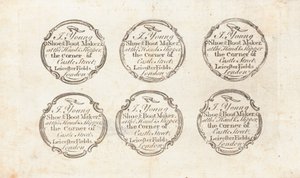 J. Young
Shoe & Boot Maker,
at the Hand & Slipper
the Corner of
Castle Street
Leicester Fields,
London
J. Young
Shoe & Boot Maker,
at the Hand & Slipper
the Corner of
Castle Street
Leicester Fields,
London
J. Young
Shoe & Boot Maker,
at the Hand & Slipper
the Corner of
Castle Street
Leicester Fields,
London
J. Young
Shoe & Boot Maker,
at the Hand & Slipper
the Corner of
Castle Street
Leicester Fields,
London
J. Young
Shoe & Boot Maker,
at the Hand & Slipper
the Corner of
Castle Street
Leicester Fields,
London
J. Young
Shoe & Boot Maker,
at the Hand & Slipper
the Corner of
Castle Street
Leicester Fields,
London